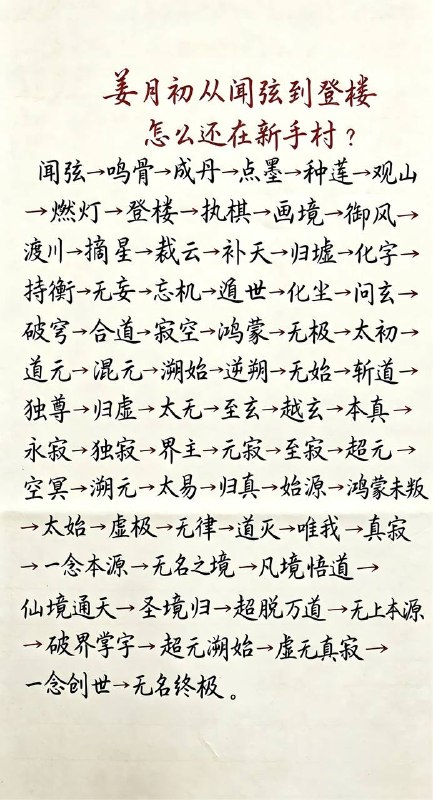 姜月初从闻弦到登楼
怎么还在新手村？
闻弦→鸣骨→成丹→点墨→种莲→观山
→燃灯→登楼→执棋→画境→御风→
渡川→摘星→裁云→补天→归墟→化字→
持衡→无妄→忘机→遁世→化尘→问玄→
破穹→合道→寂空→鸿蒙→无极→太初→
道元→混元→溯始→逆朔→无始→斩道→
独尊→归虚→太无→至玄→越玄→本真→
永寂→独寂→界主→元寂→至寂→超元→
空冥→溯元→太易→归真→始源→鸿蒙未叛
→太始→虚极→无律→道灭→唯我→真寂
→一念本源→无名之境→凡境悟道→
仙境通天→圣境归→超脱万道→无上本源
→破界掌字→超元溯始→虚无真寂→
一念创世→无名终极。